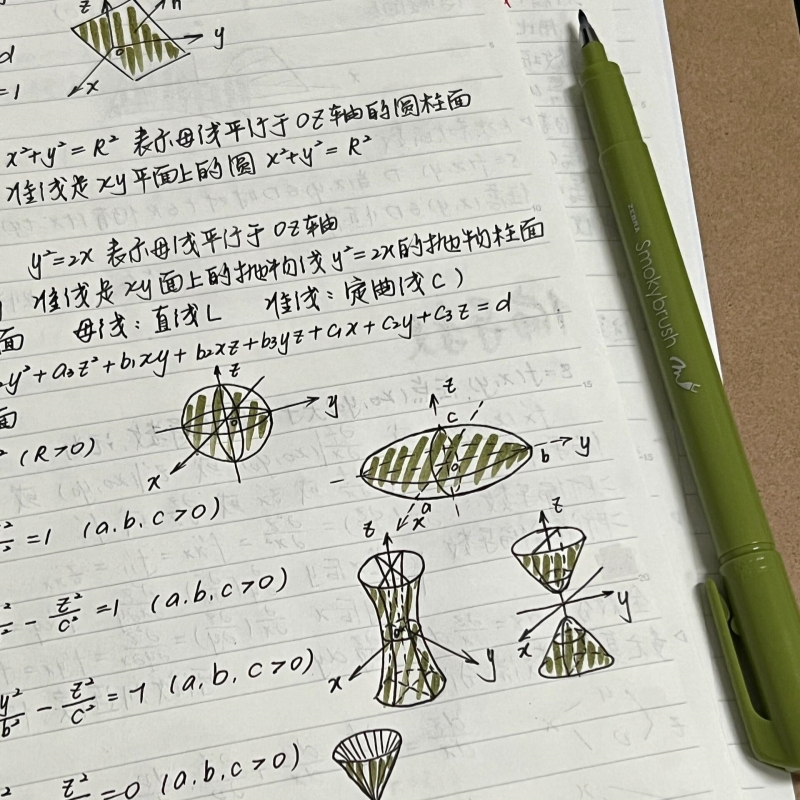 z n
o y
x
d
=1
x²+y²=R² 表示母线平行于OZ轴的圆柱面
准线是xy平面上的圆 x²+y²=R²
y²=2x 表示母线平行于OZ轴
准线是xy面上的抛物线y²=2x的抛物柱面
面 母线:直线L 准线:定曲线C)
y²+a₃z²+b₁xy+b₂xz+b₃yz+c₁x+c₂y+c₃z=d
面
z
o y
x
² (R>0)
z
c
o b y
a x
=1 (a,b,c>0)
z
o
x y
- z²/c² =1 (a,b,c>0)
z
x y
y²/b² - z²/c² =-1 (a,b,c>0)
z² =0 (a,b,c>0)
ZEBRA Smokybrush